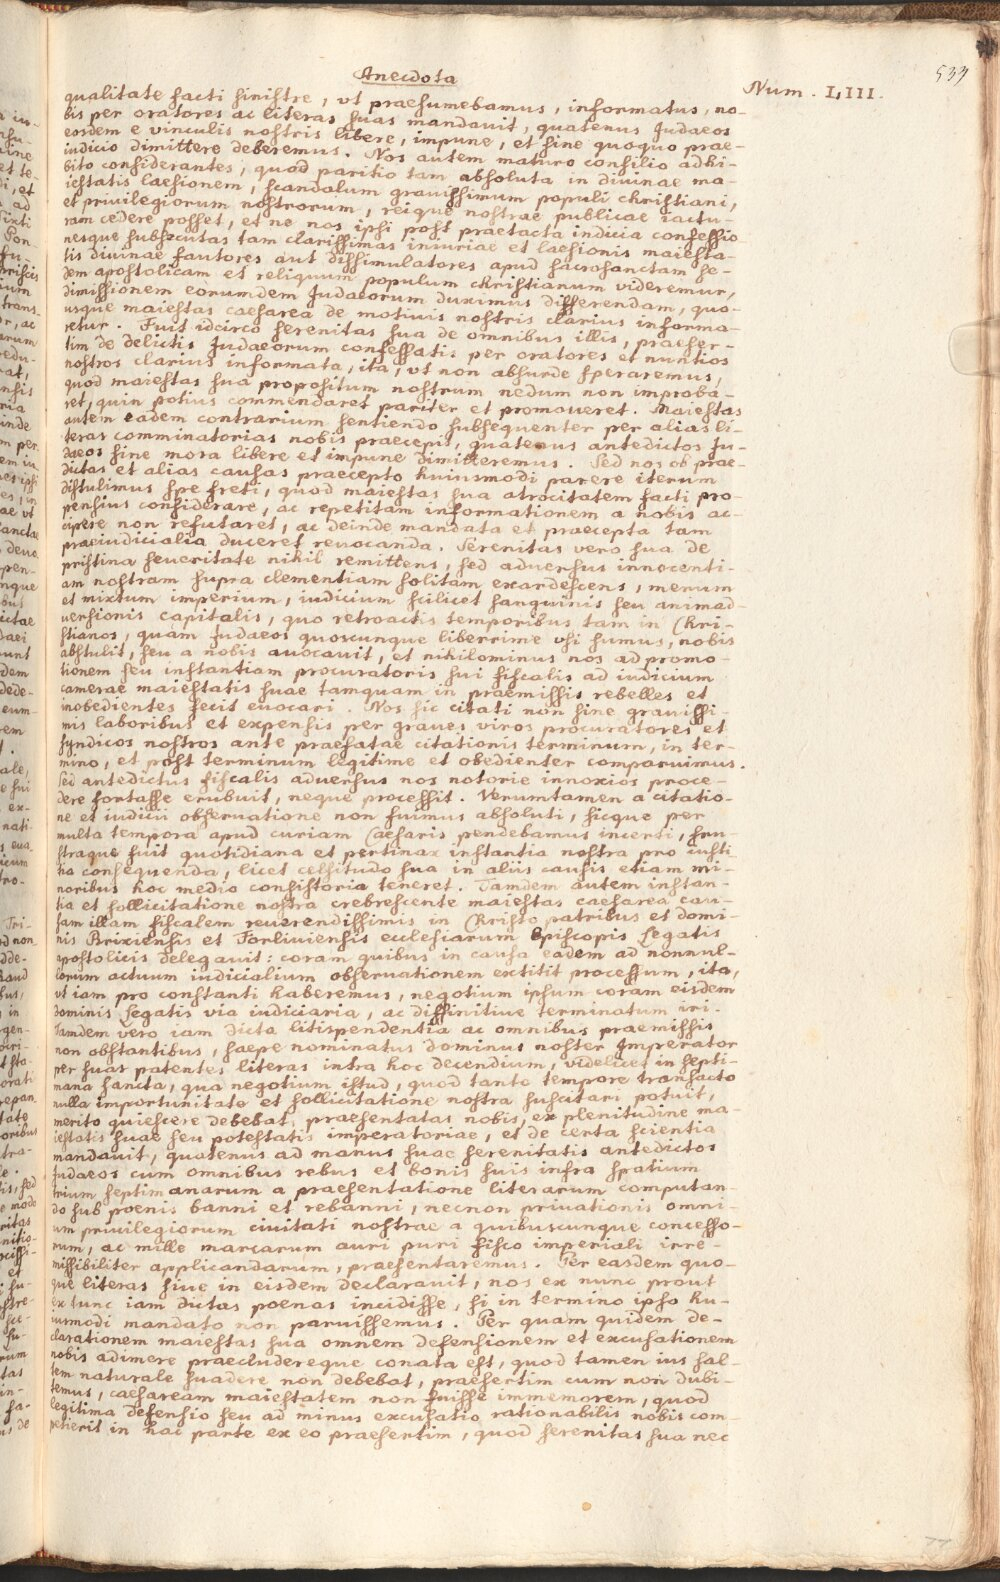 Anecdota
Num. LIII.
533
qualitate facti sinistre, vt praesumebamus, informatus, no-
bis per oratores ac literas suas mandauit, quatenus Judaeos
eosdem e vinculis nostris libere, impune, et sine quoquo prae-
iudicio dimittere deberemus. Nos autem maturo consilio adhi-
bito considerantes, quod paritio tam absoluta in diuinae ma-
iestatis laesionem, scandalum grauissimum populi christiani,
et priuilegiorum nostrorum, reique nostrae publicae iactu-
ram cedere posset, et ne nos ipsi post praetacta indicia confessio-
nesque subsecutas tam clarissimas iniuriae et laesionis maiesta-
tis diuinae fautores aut dissimulatores apud sacrosanctam se-
dem apostolicam et reliquum populum christianum videremur,
dimissionem eorumdem Judaeorum duximus differendam, quo-
usque maiestas caesarea de motiuis nostris clarius informa-
retur. Fuit idcirco serenitas sua de omnibus illis, praeser-
tim de delictis Judaeorum confessatis per oratores et nuntios
nostros clarius informata, ita, vt non absurde speraremus,
quod maiestas sua propositum nostrum nedum non improba-
ret, quin potius commendaret pariter et promoueret. Maiestas
autem eadem contrarium sentiendo subsequenter per alias li-
teras comminatorias nobis praecepit, quatenus antedictos Ju-
daeos sine mora libere et impune dimitteremus. Sed nos ob prae-
dictas et alias causas praecepto huiusmodi parere iterum
distulimus spe freti, quod maiestas sua atrocitatem facti pro-
pensius considerare, ac repetitam informationem a nobis ac-
cipere non refutaret, ac deinde mandata et praecepta tam
praeiudicialia duceret reuocanda. Serenitas vero sua de
pristina seueritate nihil remittens, sed aduersus innocenti-
am nostram supra clementiam solitam exardescens, merum
et mixtum imperium, iudicium scilicet sanguinis seu animad-
uersionis capitalis, quo retroactis temporibus tam in Chri-
stianos, quam Judaeos quoscunque liberrime vsi sumus, nobis
abstulit, seu a nobis auocauit, et nihilominus nos ad promo-
tionem seu instantiam procuratoris sui fiscalis ad iudicium
camerae maiestatis suae tamquam in praemissis rebelles et
inobedientes fecit euocari. Nos sic citati non sine grauissi-
mis laboribus et expensis per graues viros procuratores et
syndicos nostros ante praefatae citationis terminum, in ter-
mino, et post terminum legitime et obedienter comparuimus.
Sed antedictus fiscalis aduersus nos notorie innoxios proce-
dere fortasse erubuit, neque processit. Verumtamen a citatio-
ne et iudicii obseruatione non fuimus absoluti, sicque per
multa tempora apud curiam Caesaris pendebamus incerti, fru-
straque fuit quotidiana et pertinax instantia nostra pro iusti-
tia consequenda, licet celsitudo sua in aliis causis etiam mi-
noribus hoc medio consistoria teneret. Tamdem autem instan-
tia et sollicitatione nostra crebrescente maiestas caesarea cau-
sam illam fiscalem reuerendissimis in Christo patribus et domi-
nis Brixiensis et Forliuiensis ecclesiarum Episcopis Legatis
apostolicis delegauit: coram quibus in causa eadem ad nonnul-
lorum actuum iudicialium obseruationem extitit processum, ita,
vt iam pro constanti haberemus, negotium ipsum coram eisdem
Dominis Legatis via iudiciaria, ac diffinitiue terminatum iri.
Tamdem vero iam dicta litispendentia ac omnibus praemissis
non obstantibus, saepe nominatus Dominus noster Imperator
per suas patentes literas intra hoc decendium, videlicet in septi-
mana sancta, qua negotium istud, quod tanto tempore transacto
nulla importunitate et sollicitatione nostra suscitari potuit,
merito quiescere debebat, praesentatas nobis, ex plenitudine ma-
iestatis suae seu potestatis imperatoriae, et de certa scientia
mandauit, quatenus ad manus suae serenitatis antedictos
Judaeos cum omnibus rebus et bonis suis infra spatium
trium septimanarum a praesentatione literarum computan-
do sub poenis banni et rebanni, necnon priuationis omni-
um priuilegiorum ciuitati nostrae a quibuscunque concesso-
rum, ac mille marcarum auri puri fisco imperiali irre-
missibiliter applicandarum, praesentaremus. Per easdem quo-
que literas siue in eisdem declarauit, nos ex nunc prout
ex tunc iam dictas poenas incidisse, si in termino ipso hu-
iusmodi mandato non paruissemus. Per quam quidem de-
clarationem maiestas sua omnem defensionem et excusationem
nobis adimere praecludereque conata est, quod tamen ius sal-
tem naturale suadere non debebat, praesertim cum non dubi-
temus, caesaream maiestatem non fuisse immemorem, quod
legitima defensio seu ad minus excusatio rationabilis nobis com-
petierit in hac parte ex eo praesertim, quod serenitas sua nec